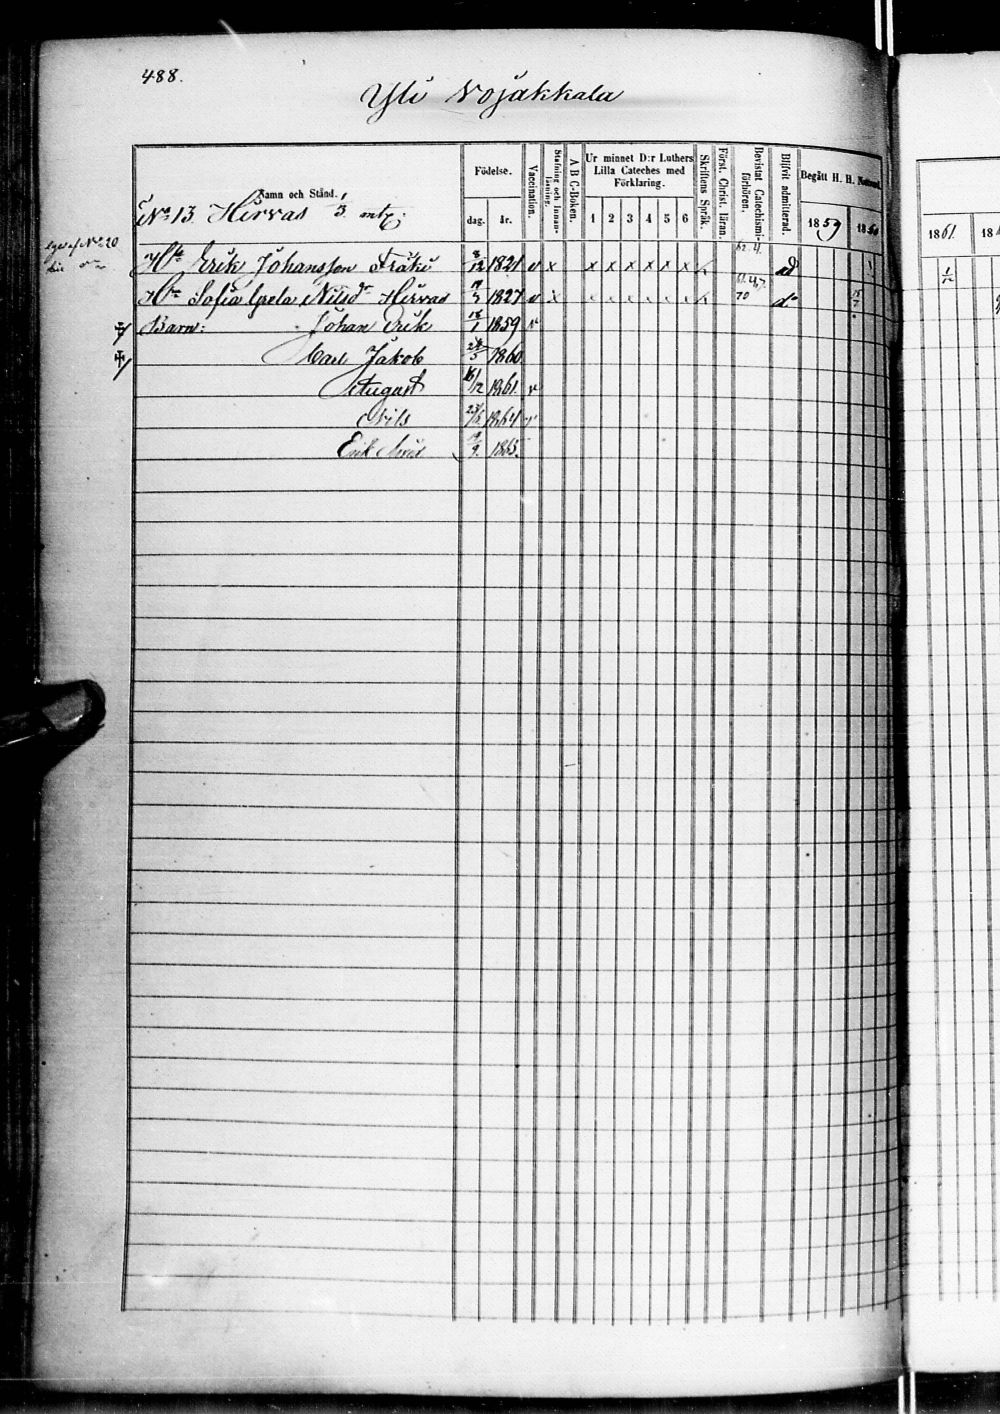 488.
Yli Vojakkala
Namn och Stånd.
Födelse.
dag. år.
Vaccination.
Stafning och Innanläsning.
A B C-Boken.
Ur minnet D:r Luthers Lilla Cateches med Förklaring.
1 2 3 4 5 6
Skriftens Språk.
Först. Christ. läran.
Bevistat Catechismiförhören.
Blifvit admitterad.
Begått H. H. Nattvard.
1859 1860
1861 18
No 13 Hirvas mtl:
Erik Johansson 12 1821 v x x x x x x x
Sofia Greta Nilsdr Hirvas 1827 v x
70
Barn: Johan Erik 1859 v
Carl Jakob 5 1860
August 16/12 1861 v
Nils 1864
Erik 9 1865.